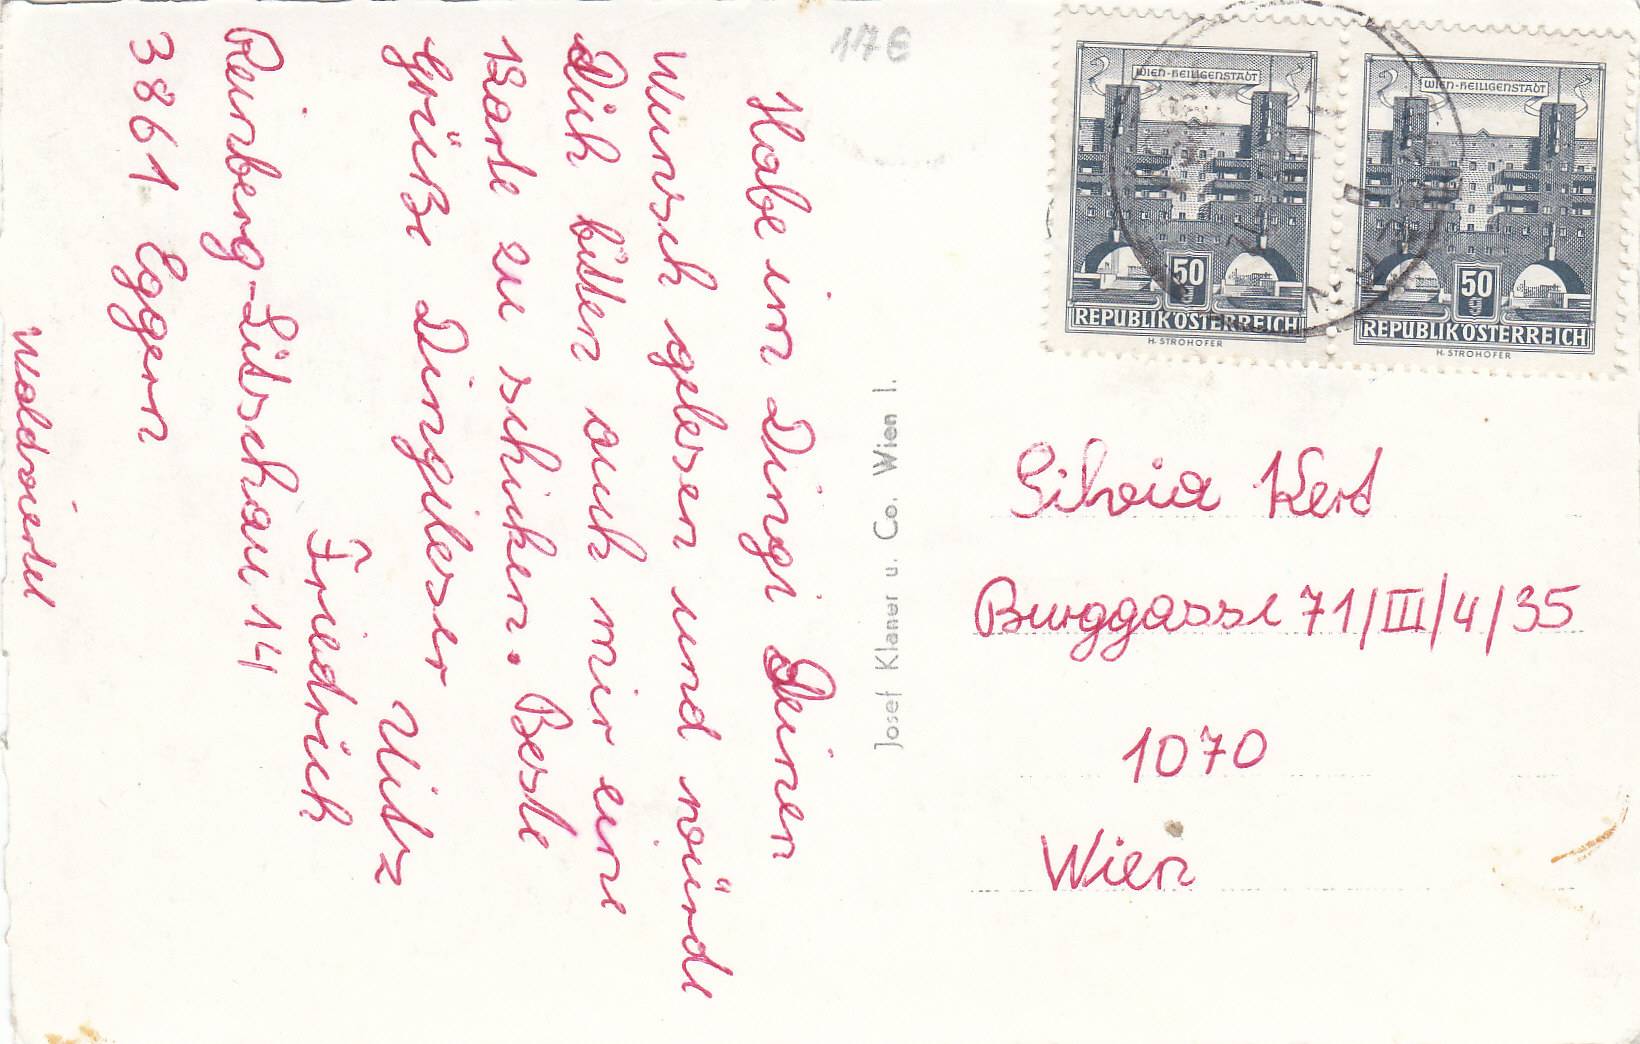 Habe im Dingi Deinen
Wunsch gelesen und würde
Dich bitten auch mir eine
Karte zu schicken. Beste
Grüße Dingileser
Friedrich
Reinberg-Litschau 14
3861 Eggern
Waldviertel
Josef Klaner u. Co. Wien I.
WIEN-HEILIGENSTADT
50
g
REPUBLIK ÖSTERREICH
H. STROHOFER
WIEN-HEILIGENSTADT
50
g
REPUBLIK ÖSTERREICH
H. STROHOFER
Silvia Kert
Burggasse 71/III/4/35
1070
Wien